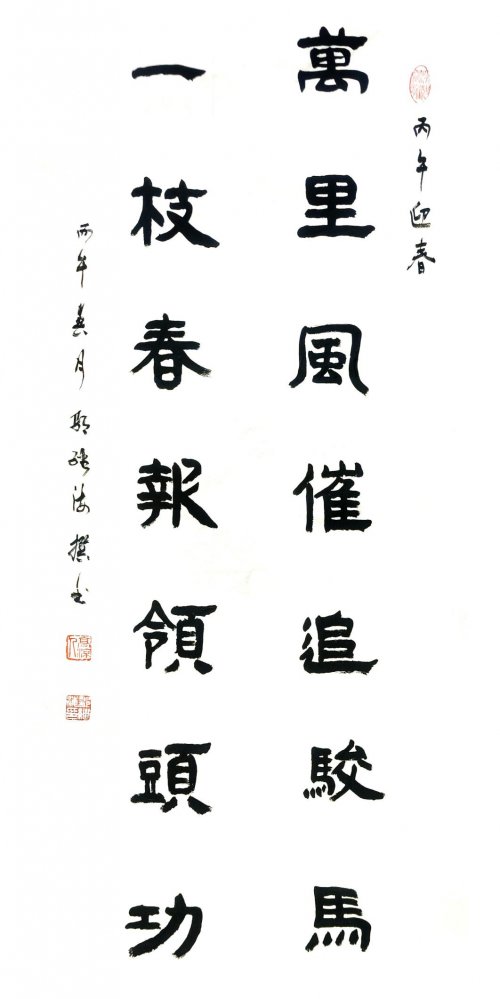 丙午迎春
萬里風催追駿馬
一枝春報領頭功
丙午春月 撰書